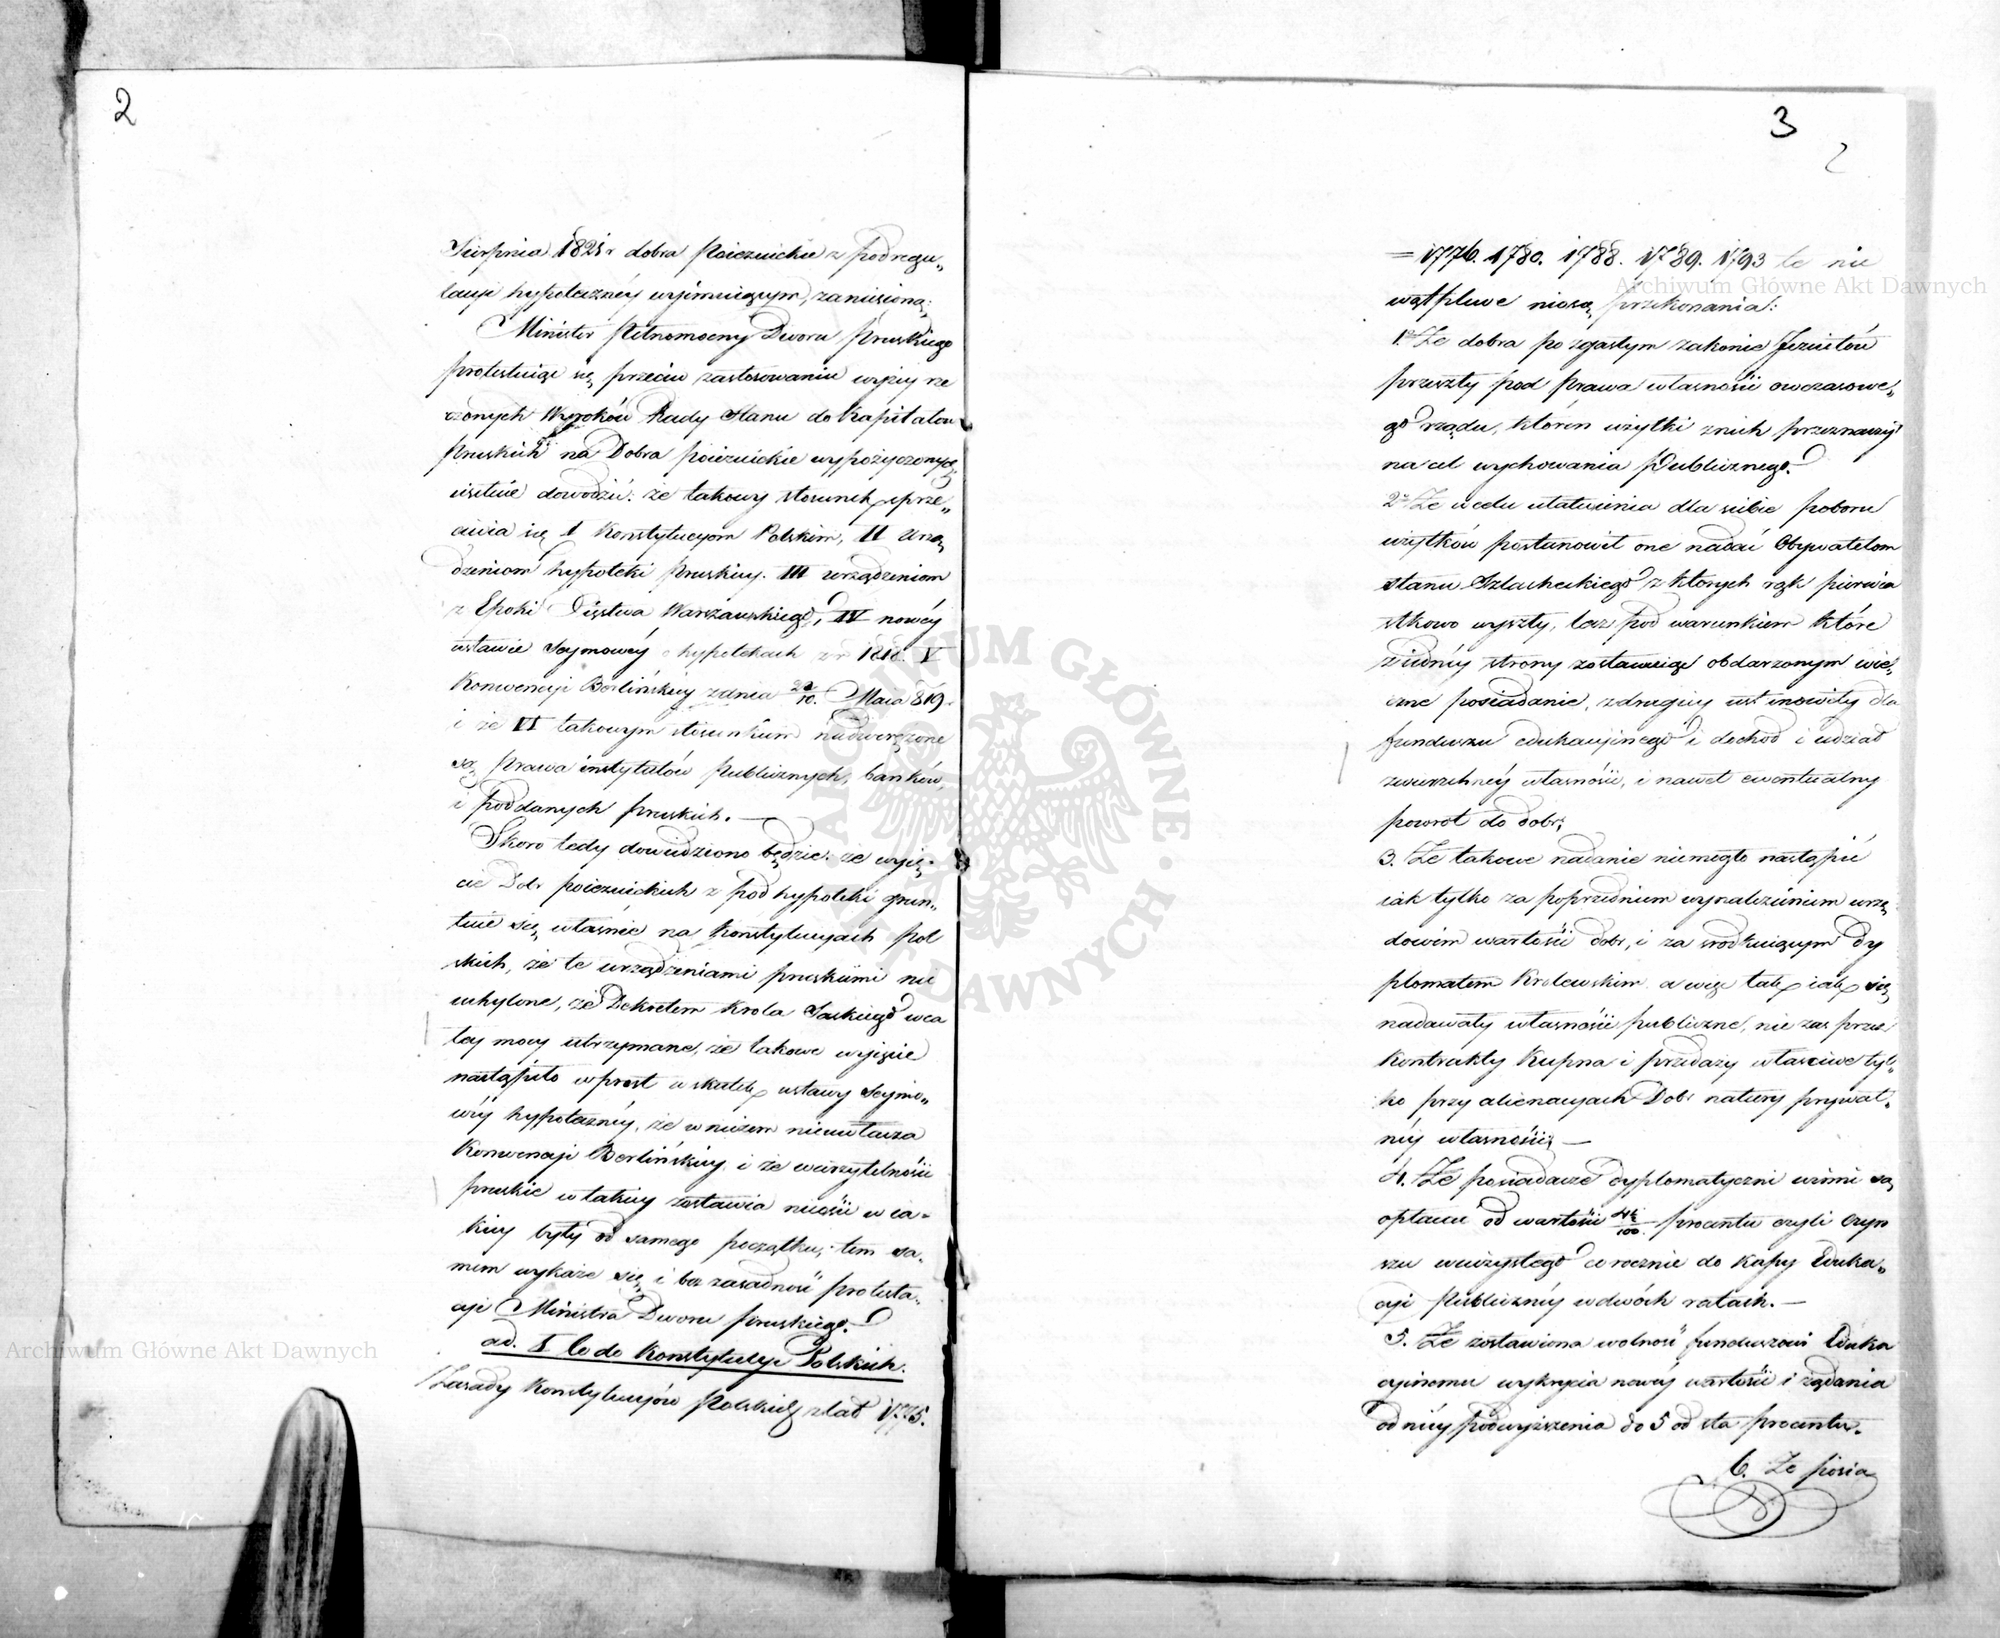 2
Sierpnia 1821 r dobra Poiezuickie z pod regu„
lacyi hypoteczney wyimuiącym, zaniesioną.
Minister Pełnomocny Dworu Pruskiego
protestuiąc się przeciw zastosowaniu wyżey rze
czonych Wyroków Rady Stanu do Kapitałow
Pruskich na Dobra poiezuickie wypożyczonych
usiłuie dowodzić: że takowy stosunek sprze„
ciwia się I Konstytucyom Polskim, II Urzą
dzeniom hypoteki Pruskiey. III urządzeniom
z Epoki Xięstwa Warszawskiego, IV nowéy
ustawie Seymowéy o hypotekach z r 1818. V
Konwencyi Berlińskiéy z dnia 22/10. Maia 819.
i że VI takowym stosunkiem nadwerężone
są Prawa instytutów Publicznych, banków,
i poddanych pruskich. —
Skoro tedy dowiedziono będzie: że wyię-
cie Dobr poiezuickich z pod hypoteki grun„
tuie się właśnie na Konstytucyach Pol
skich, że te urządzeniami pruskiemi nie
uchylone, że Dekretem Krola Saskiego w ca
łey mocy utrzymane, że takowe wyięcie
nastąpiło wprost w skutek ustawy Seymo„
wéy hypoteznéy, że w niczem nieuwłacza
Konwencyi Berlińskiey i że wierzytelności
pruskie w takiey zostawia niecości w ia-
kiey były od samego początku; tem sa-
mem wykaże się i bez zasadność protesta-
cyi Ministra Dworu pruskiego.
ad. I Co do Konstytucyi Polskich.
Zasady Konstytucyów Polskich z lat 1775.
3
2
= 1776. 1780. 1788. 1789. 1793 te nie
wątpliwe niosą przekonania:
1o Ze dobra po zgasłym zakonie Jezuitów
przeszły pod prawa własności owczasowe„
go rządu, któren użytki z nich przeznaczył
na cel wychowania Publicznego.
2o Ze w celu ułatwienia dla siebie poboru
użytków postanowił one nadać Obywatelom
stanu Szlacheckiego z których rąk pierwia
stkowo wyszły, lecz pod warunkiem które
z iednéy strony zostawuiąc obdarzonym wie„
czne posiadanie, z drugiey ustanowiły dla
funduszu edukacyinego i dochod i udział
zwierzchnéy własności, i nawet ewentualny
powrot do dobr;
3. Ze takowe nadanie niemogło nastąpić
iak tylko za poprzedniem wynalezieniem urzę
dowém wartości dobr, i za srodkuiącym Dy
plomatem Krolewskim a więc tak iak się
nadawały własności publiczne, nie zas przez
Kontrakty Kupna i przedaży właściwe tyl„
ko przy alienacyach Dobr natury prywat„
néy własności; —
4. Ze posiadacze dyplomatyczni winni są
opłacać od wartości 4½/100. procentu czyli czyn
szu wieczystego co rocznie do Kassy Eduka„
cyi Publicznéy w dwóch ratach. —
5. Ze zostawiona wolność funduszowi Eduka
cyinemu wykrycia nowéy wartości i żądania
od niéy podwyższenia do 5 od sta procentu.
6. Ze posia
Archiwum Główne Akt Dawnych
Archiwum Główne Akt Dawnych
ARCHIWUM GŁÓWNE AKT DAWNYCH